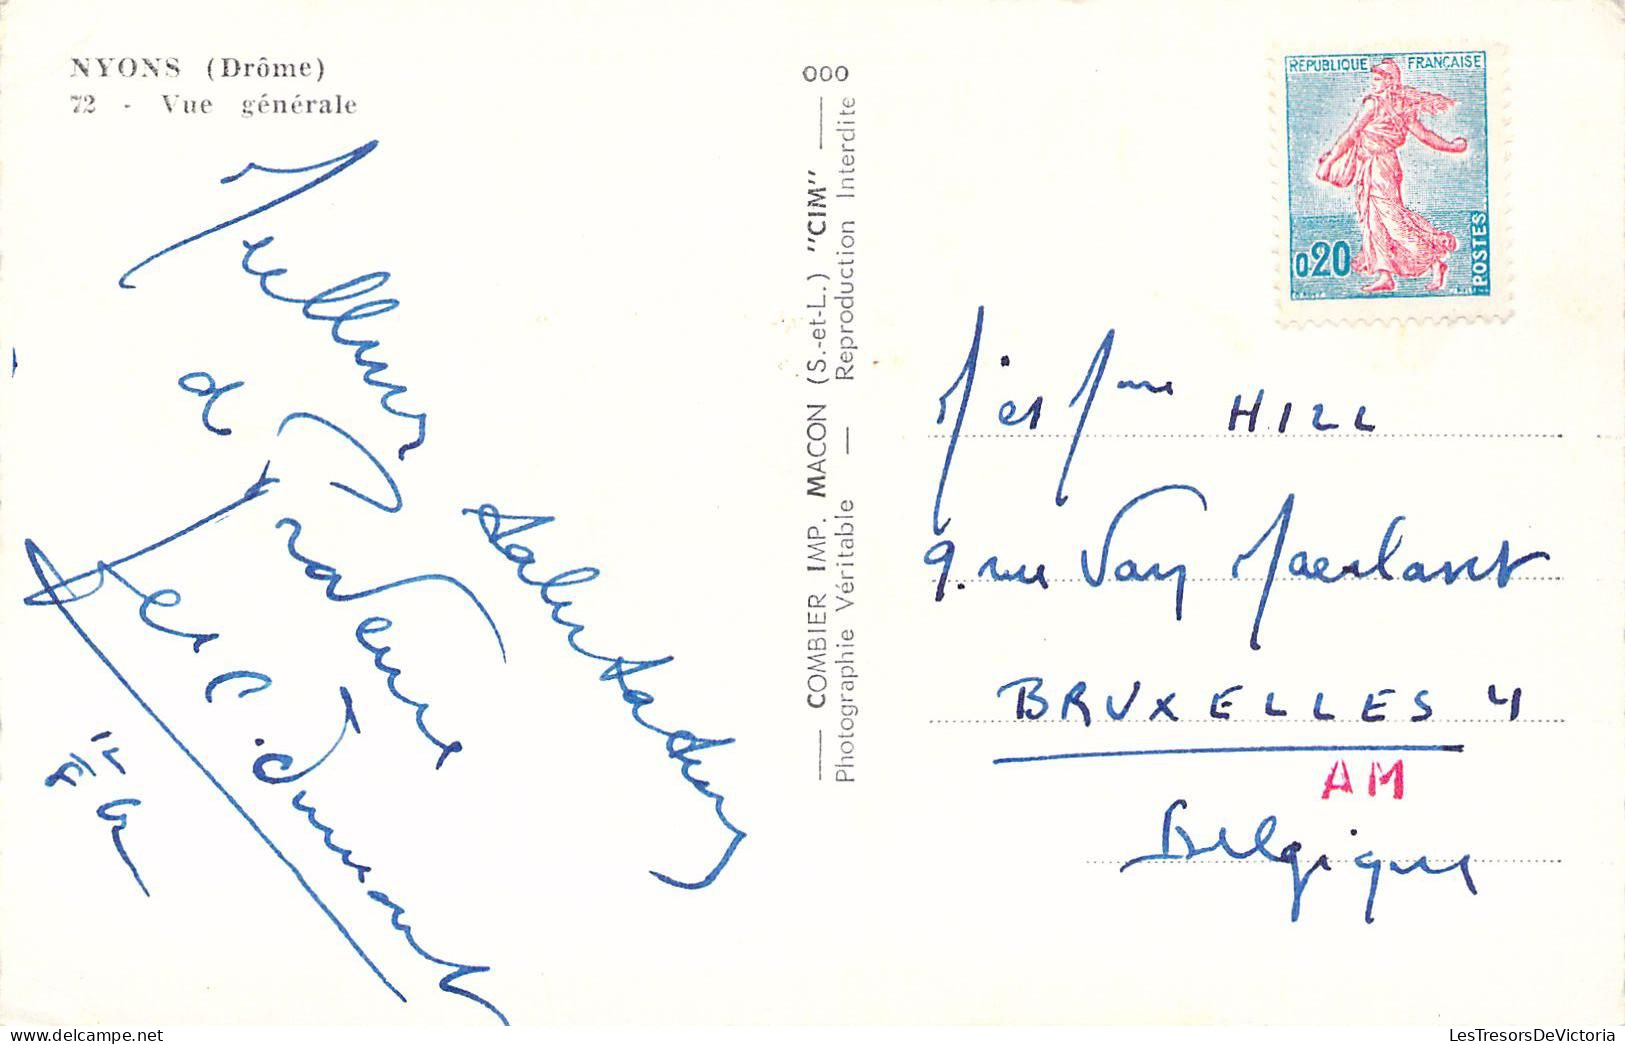 NYONS (Drôme)
72 - Vue générale
Meilleures salutations
de Provence
000
COMBIER IMP. MACON (S.-et-L.) "CIM"
Photographie Véritable — Reproduction Interdite
REPUBLIQUE FRANÇAISE
0,20
POSTES
M et Mme HILL
9. rue Van Maerlant
BRUXELLES 4
AM
Belgique
delcampe.net
LesTresorsDeVictoria